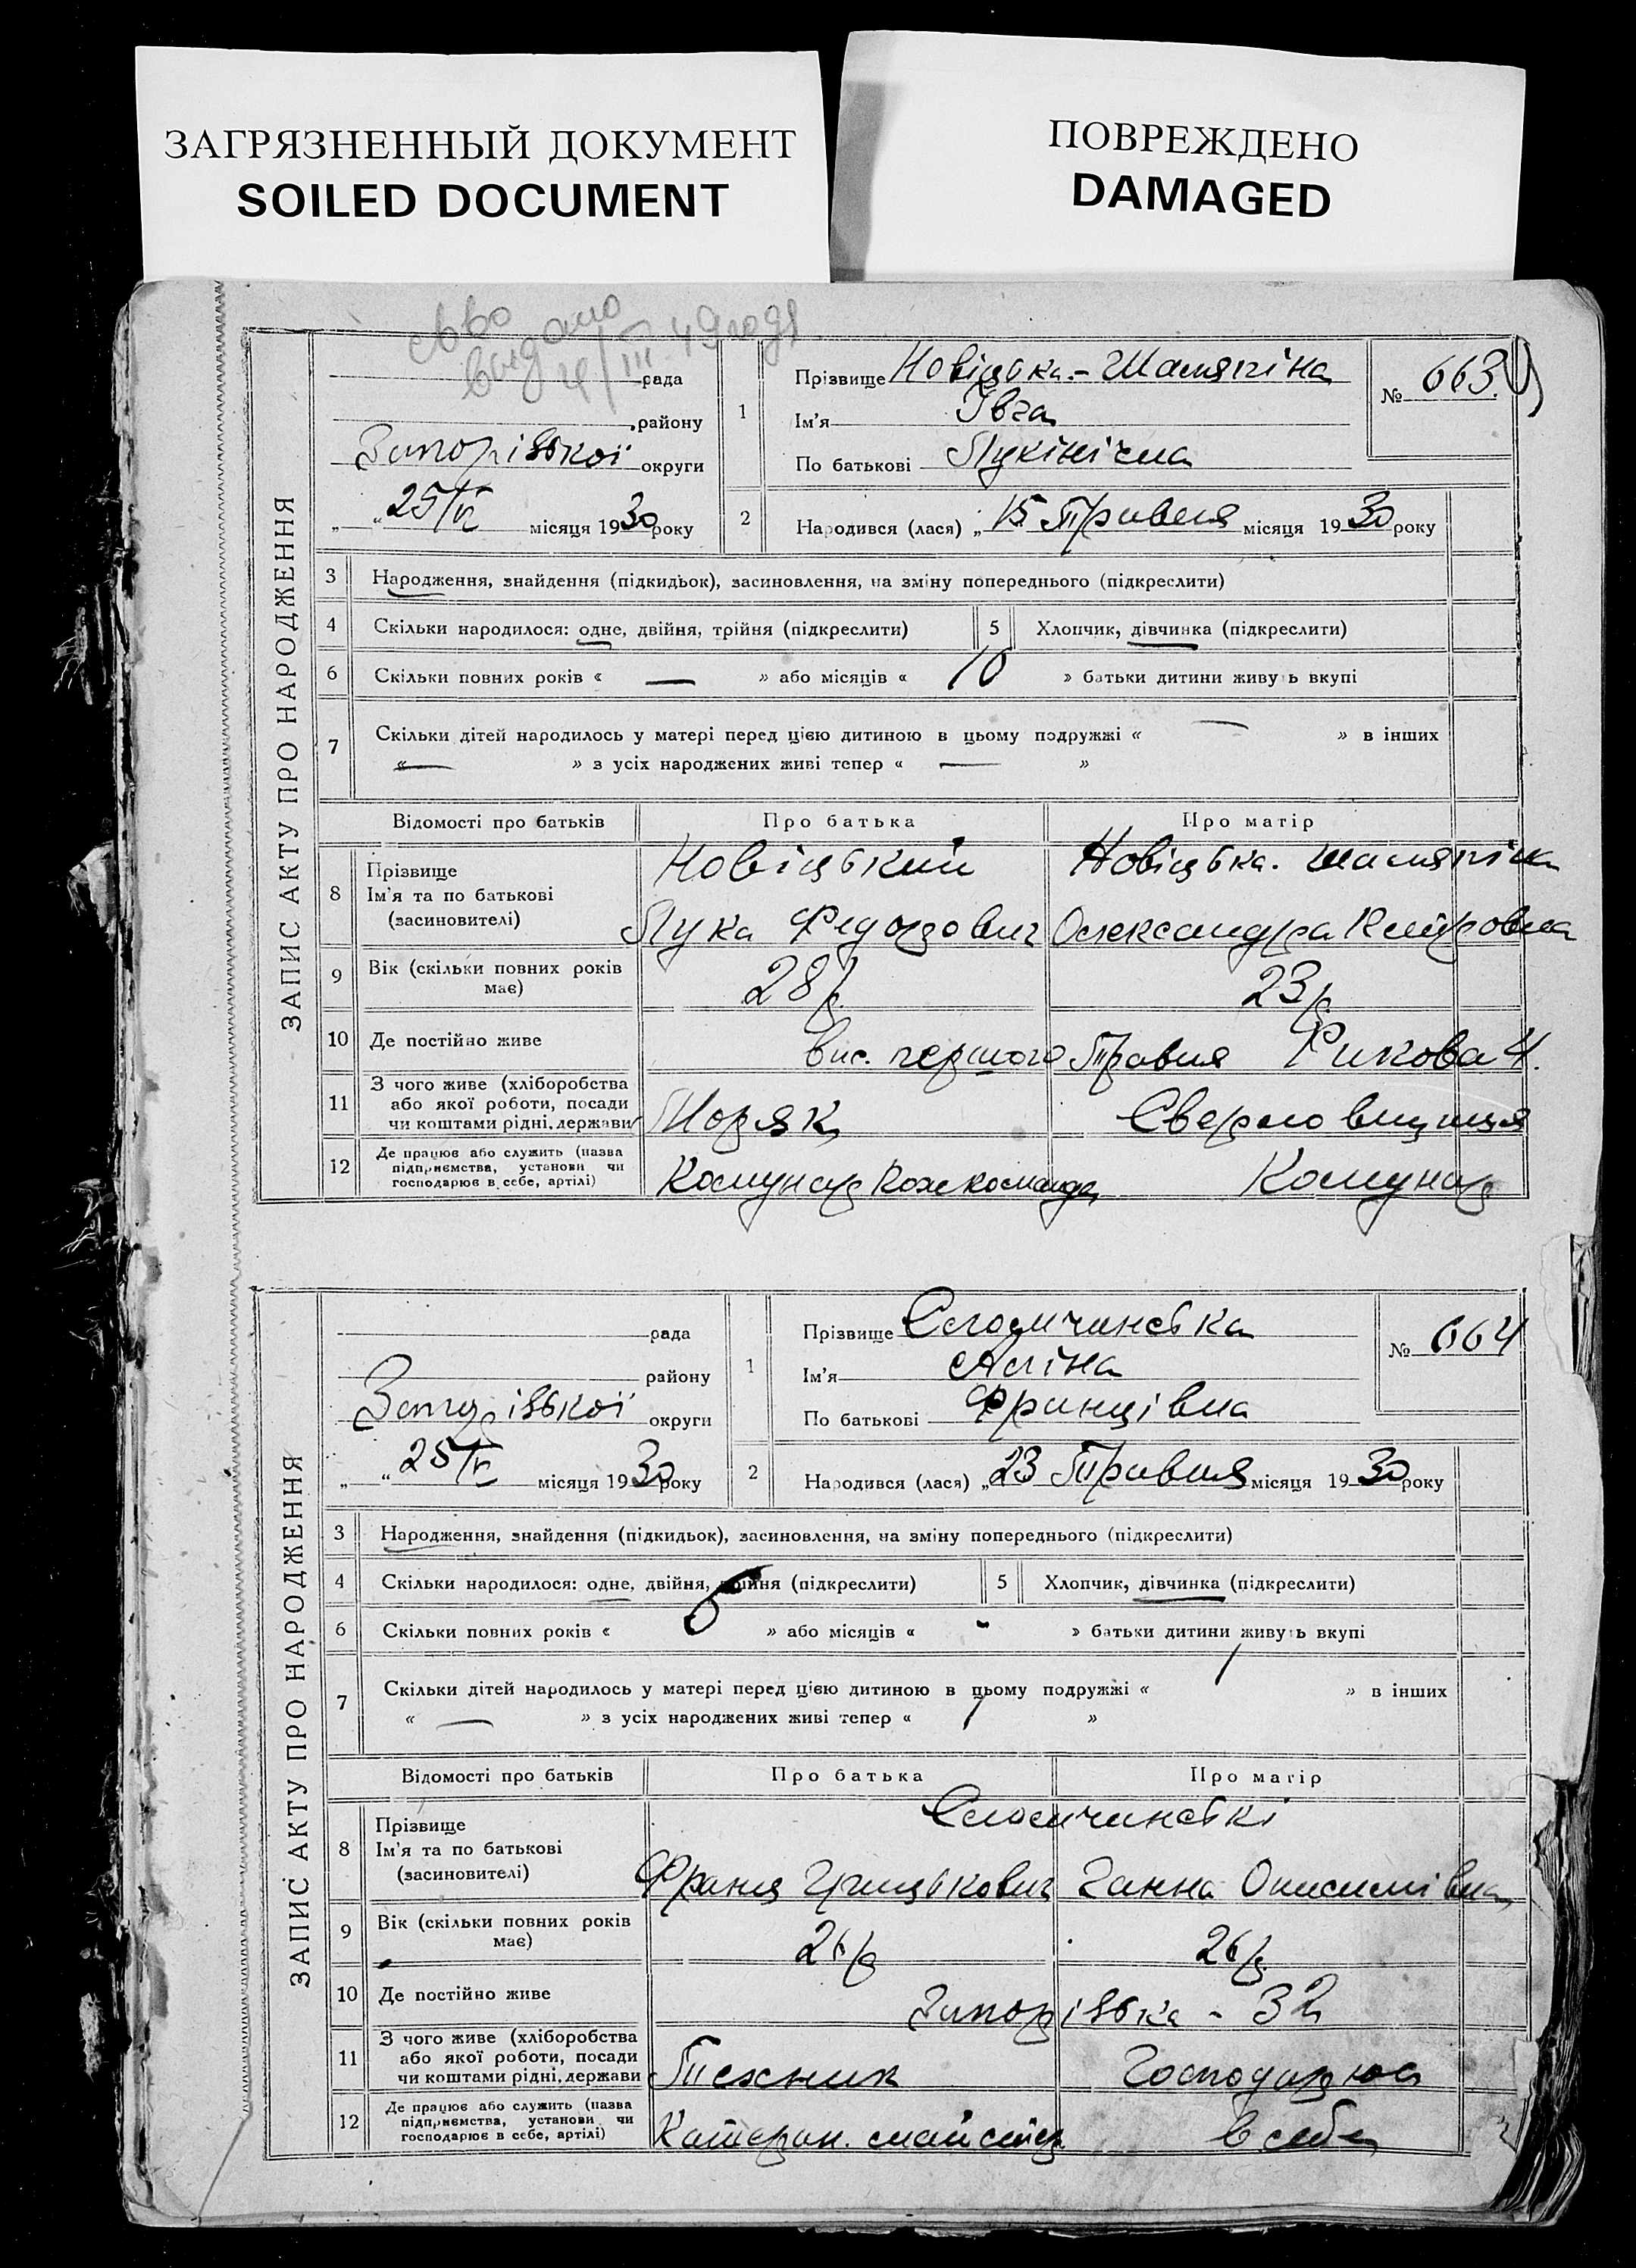 ЗАГРЯЗНЕННЫЙ ДОКУМЕНТ
SOILED DOCUMENT
ПОВРЕЖДЕНО
DAMAGED
ЗАПИС АКТУ ПРО НАРОДЖЕННЯ
рада
району
Запорізької округи
„ “ 25/VI місяця 1930 року
1 Прізвище Новіцька-Шаляпіна
Ім'я Івга
По батькові Лукінічна
№ 663
2 Народився (лася) „15 Травня місяця 1930 року
3 Народження, знайдення (підкидьок), засиновлення, на зміну попереднього (підкреслити)
4 Скільки народилося: одне, двійня, трійня (підкреслити) 5 Хлопчик, дівчинка (підкреслити)
6 Скільки повних років « — » або місяців « 10 » батьки дитини живуть вкупі
7 Скільки дітей народилось у матері перед цією дитиною в цьому подружжі « — » в інших
« — » з усіх народжених живі тепер « — »
Відомості про батьків Про батька Про матір
8 Прізвище Новіцький Новіцька-Шаляпіна
Ім'я та по батькові
(засиновителі) Лука Олександра
9 Вік (скільки повних років має) 28р. 23р.
10 Де постійно живе вис. першого Травня Рикова 4.
11 З чого живе (хліборобства
або якої роботи, посади
чи коштами рідні, держави) Моряк
12 Де працює або служить (назва
підприємства, установи чи
господарює в себе, артілі) Комунар Комунар
ЗАПИС АКТУ ПРО НАРОДЖЕННЯ
рада
району
Запорізької округи
„ “ 25/VI місяця 1930 року
1 Прізвище
Ім'я Аліна
По батькові Францівна
№ 664
2 Народився (лася) „23 Травня місяця 1930 року
3 Народження, знайдення (підкидьок), засиновлення, на зміну попереднього (підкреслити)
4 Скільки народилося: одне, двійня, трійня (підкреслити) 5 Хлопчик, дівчинка (підкреслити)
6 Скільки повних років « 6 » або місяців « - » батьки дитини живуть вкупі
7 Скільки дітей народилось у матері перед цією дитиною в цьому подружжі « 1 » в інших
« — » з усіх народжених живі тепер « 1 »
Відомості про батьків Про батька Про матір
8 Прізвище
Ім'я та по батькові
(засиновителі) Франц Грицькович Ганна
9 Вік (скільки повних років має) 26р 26р.
10 Де постійно живе Запорізька - 32
11 З чого живе (хліборобства
або якої роботи, посади
чи коштами рідні, держави Технік Господарює
12 Де працює або служить (назва
підприємства, установи чи
господарює в себе, артілі) майстер в себе